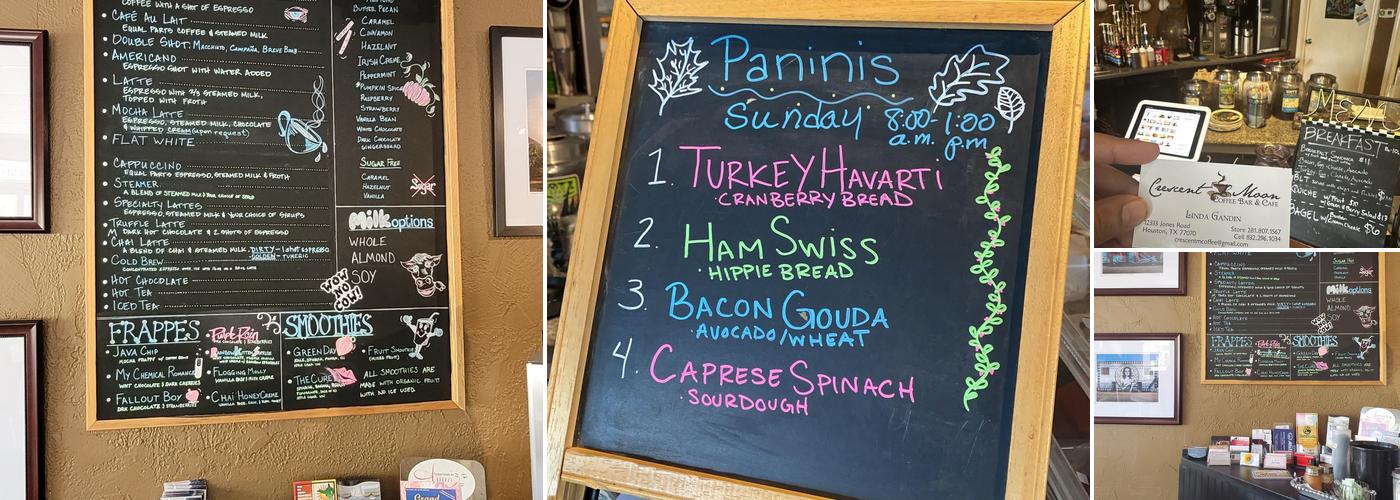 COFFEE WITH A SHOT OF ESPRESSO
CAFÉ AU LAIT
EQUAL PARTS COFFEE & STEAMED MILK
DOUBLE SHOT: MACCHIATO, CAMPAÑA, BREVE
AMERICANO
ESPRESSO SHOT WITH WATER ADDED
LATTE
ESPRESSO WITH 2/3 STEAMED MILK,
TOPPED WITH FROTH
MOCHA LATTE
ESPRESSO, STEAMED MILK, CHOCOLATE
& WHIPPED CREAM (upon request)
FLAT WHITE
CAPPUCCINO
EQUAL PARTS ESPRESSO, STEAMED MILK & FROTH
STEAMER
A BLEND OF STEAMED MILK & YOUR CHOICE OF
SPECIALTY LATTES
ESPRESSO, STEAMED MILK & YOUR CHOICE OF SYRUPS
TRUFFLE LATTE
DARK HOT CHOCOLATE & 2 SHOTS OF ESPRESSO
CHAI LATTE
A BLEND OF CHAI & STEAMED MILK. DIRTY - 1 SHOT ESPRESSO
GOLDEN - TUMERIC
COLD BREW
HOT CHOCOLATE
HOT TEA
ICED TEA
BUTTER PECAN
CARAMEL
CINNAMON
HAZELNUT
IRISH CREME
PEPPERMINT
PUMPKIN SPICE
RASPBERRY
STRAWBERRY
VANILLA BEAN
WHITE CHOCOLATE
DARK CHOCOLATE
GINGERBREAD
SUGAR FREE
CARAMEL
HAZELNUT
VANILLA
Sugar
Milk options
WHOLE
ALMOND
SOY
WOW
NO
COW!
FRAPPES
JAVA CHIP
MOCHA FRAPPE W/ COFFEE BEANS
MY CHEMICAL ROMANCE
WHT CHOCOLATE & DARK CHERRIES
FALLOUT BOY
DRK CHOCOLATE & STRAWBERRIES
Purple Rain
FLOGGING MOLLY
VANILLA BEAN & IRISH CREME
CHAI HONEY CREME
SMOOTHIES
GREEN DAY
THE CURE
FRUIT SMOOTHIE
ALL SMOOTHIES ARE
MADE WITH ORGANIC FRUIT
WITH NO ICE USED.
Paninis
Sunday 8:00-1:00
a.m. p.m
1. TURKEY HAVARTI
· CRANBERRY BREAD
2. HAM SWISS
· HIPPIE BREAD
3. BACON GOUDA
· AVOCADO/WHEAT
4. CAPRESE SPINACH
· SOURDOUGH
BREAKFAST
QUICHE
BAGEL w/ Cream Cheese $6
Crescent Moon
COFFEE BAR & CAFE
LINDA GANDIN
12333 Jones Road
Houston, TX 77070
Store 281.807.1567
Cell 832.296.1034
crescentmcoffee@gmail.com
CAPPUCCINO
STEAMER
SPECIALTY LATTES
TRUFFLE LATTE
CHAI LATTE
COLD BREW
HOT CHOCOLATE
HOT TEA
ICED TEA
Milk options
WHOLE
ALMOND
SOY
FRAPPES
SMOOTHIES